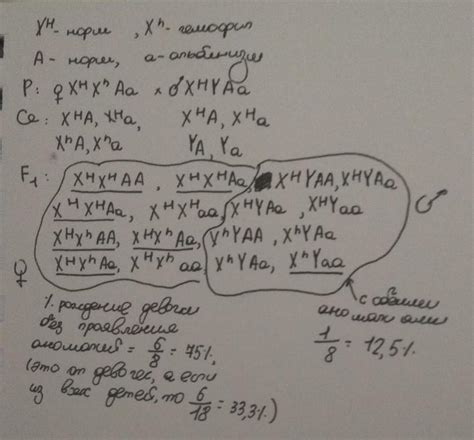 X^H - норм , X^h - гемофил
A - норм, a - альбинизм
P: ♀ X^H X^h Aa × ♂ X^H Y Aa
Ga: X^H A, X^H a,   X^H A, X^H a
X^h A, X^h a   YA, Ya
F1: X^H X^H AA , X^H X^H Aa X^H Y AA, X^H Y Aa
X^H X^H Aa, X^H X^H aa, X^H Y Aa , X^H Y aa ♂
X^H X^h AA, X^H X^h Aa, X^h Y AA , X^h Y Aa
♀ X^H X^h Aa, X^H X^h aa, X^h Y Aa, X^h Y aa
% рождение девочек
без проявления
аномалий = 6/8 = 75%
(это от девочек, а если
из всех детей, то 6/18 = 33,3%)
с обеими
аномалиями
1/8 = 12,5%